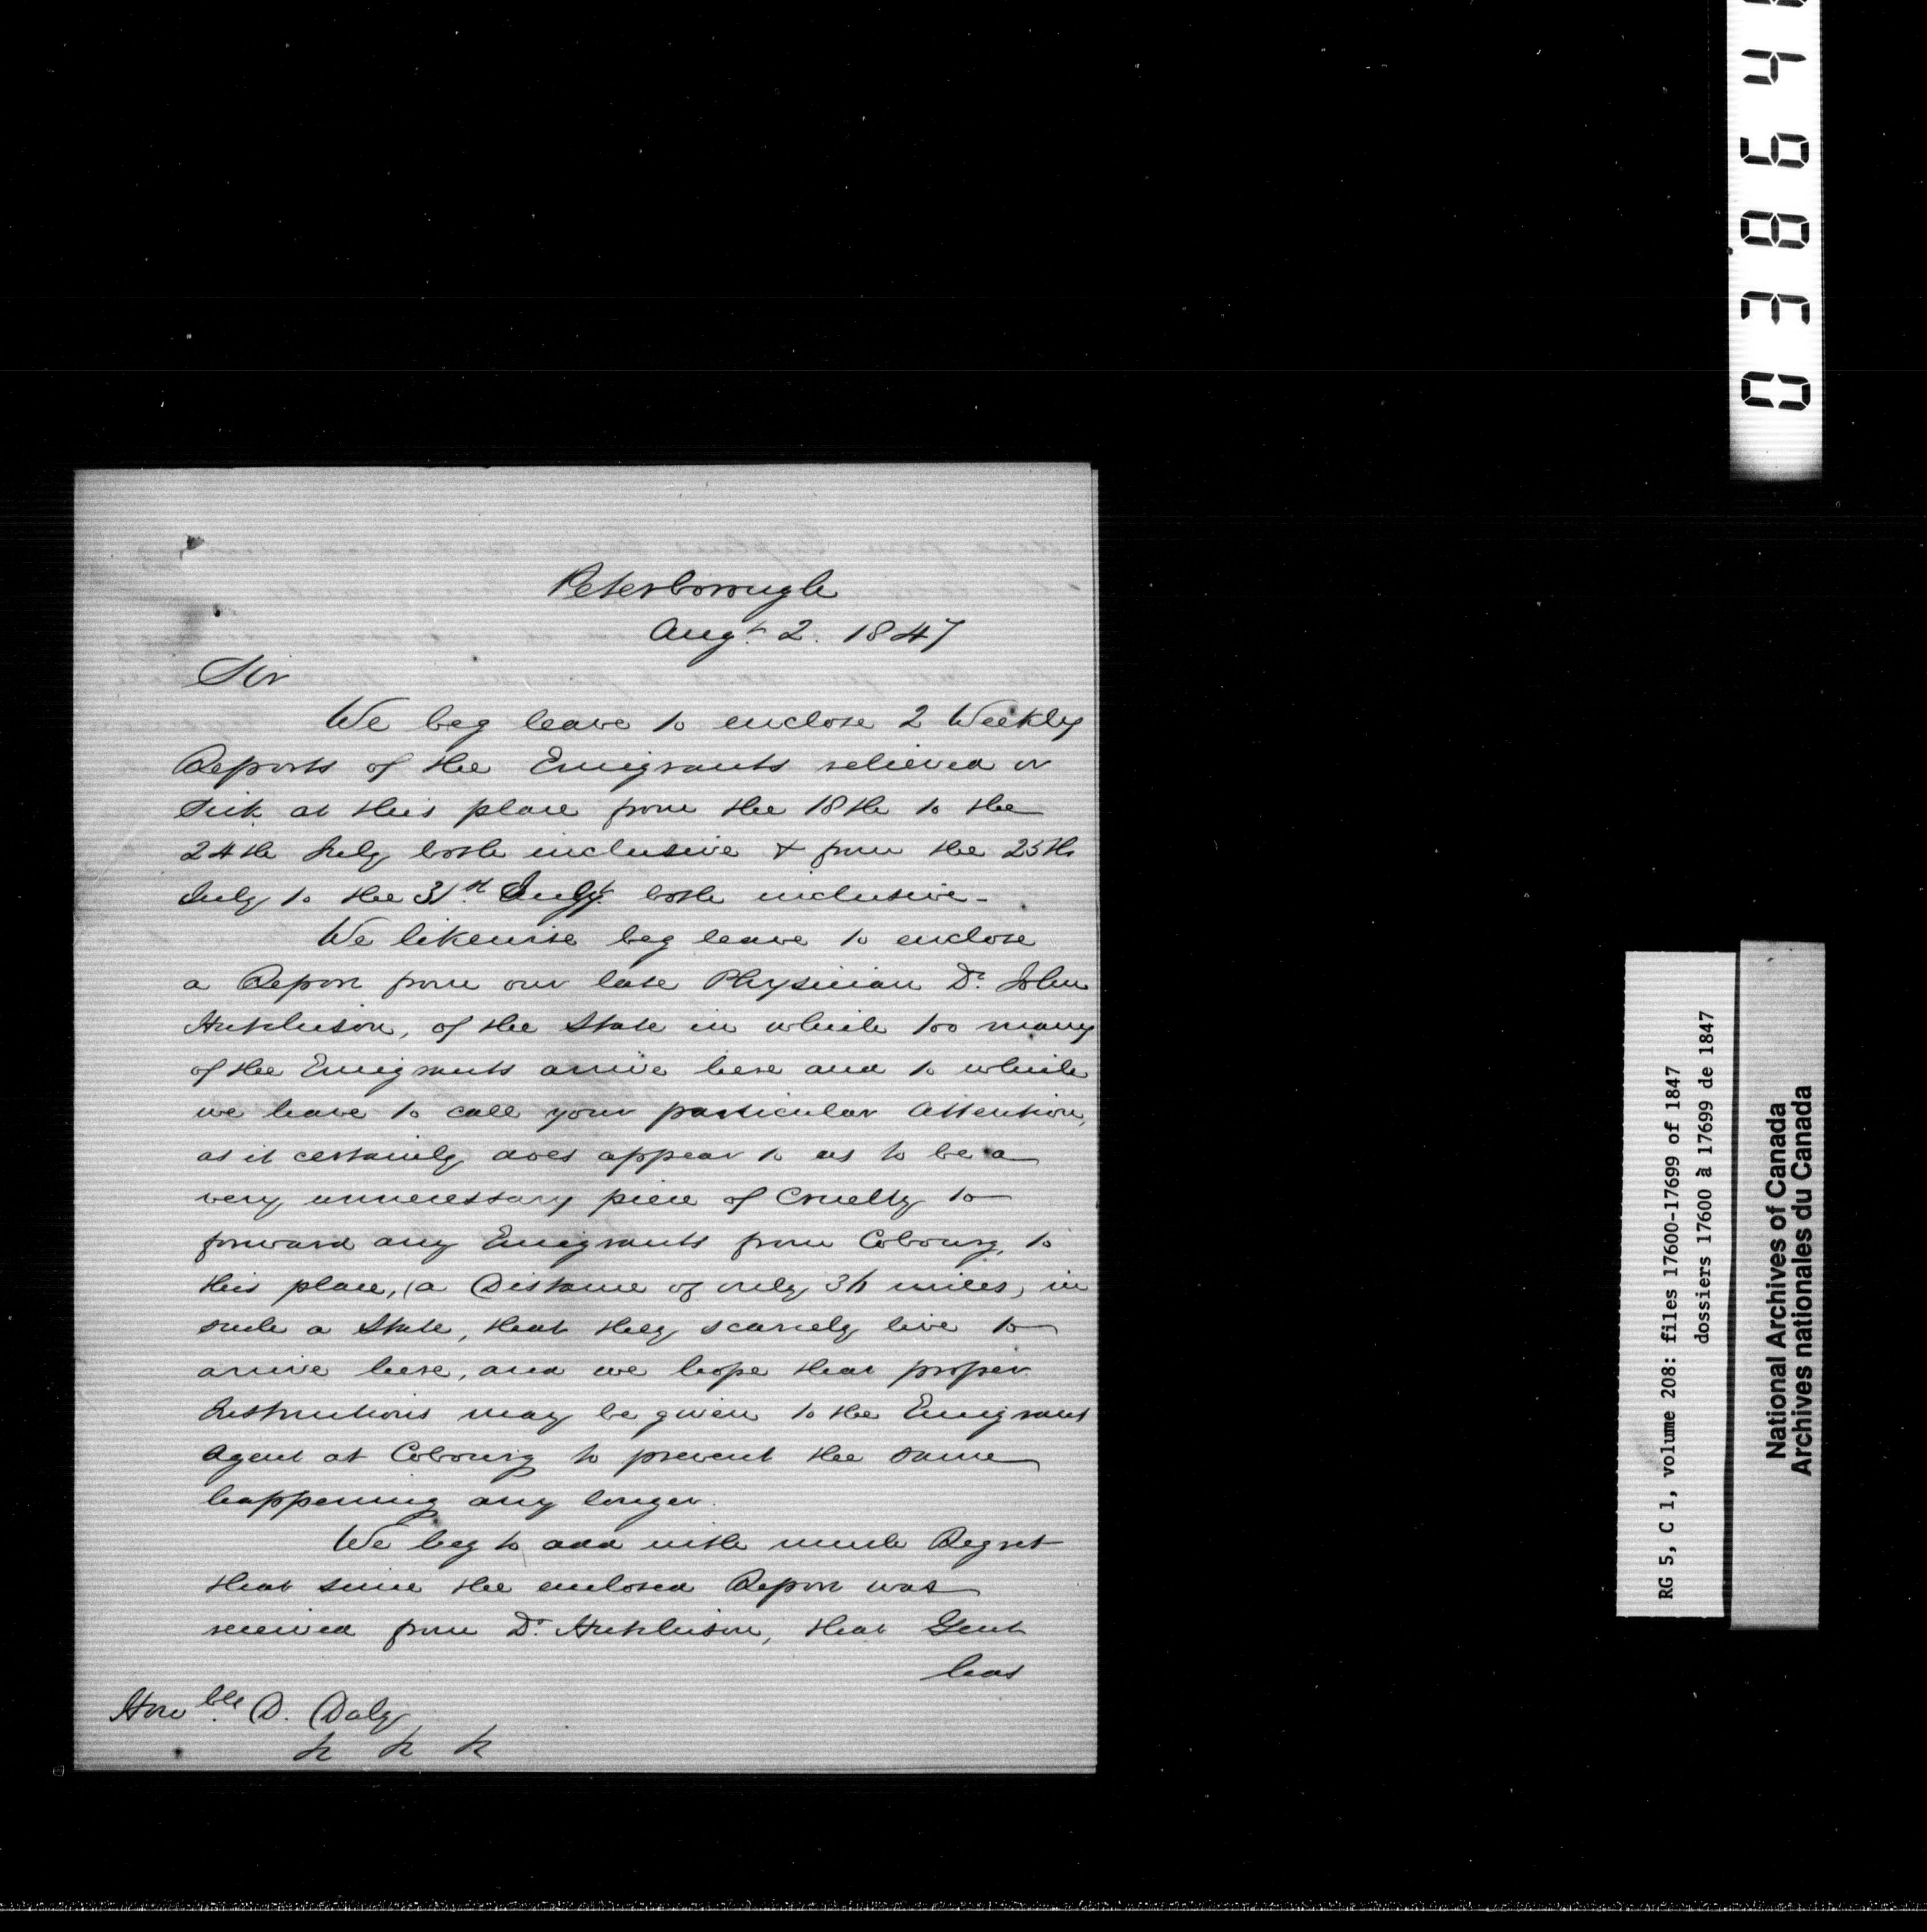 Peterborough
Augt. 2. 1847
Sir
We beg leave to enclose 2 Weekly
Reports of the Emigrants relieved or
Sick at this place from the 18th to the
24th July both inclusive & from the 25th
July to the 31st. July both inclusive -
We likewise beg leave to enclose
a Report from our late Physician Dr. John
Hutchison, of the State in which too many
of the Emigrants arrive here and to which
we leave to call your particular Attention,
as it certainly does appear to us to be a
very unnecessary piece of Cruelty to
forward any Emigrants from Cobourg, to
this place, (a Distance of only 36 miles, in
such a State, that they scarcely live to
arrive here, and we hope that proper
Instructions may be given to the Emigrant
Agent at Cobourg to prevent the same
happening any longer.
We beg to add with much Regret
that since the enclosed Report was
received from Dr. Hutchison, that Gent
has
Honble. D. Daly
0 3 8 6 4
RG 5, C 1, volume 208: files 17600-17699 of 1847
dossiers 17600 à 17699 de 1847
National Archives of Canada
Archives nationales du Canada